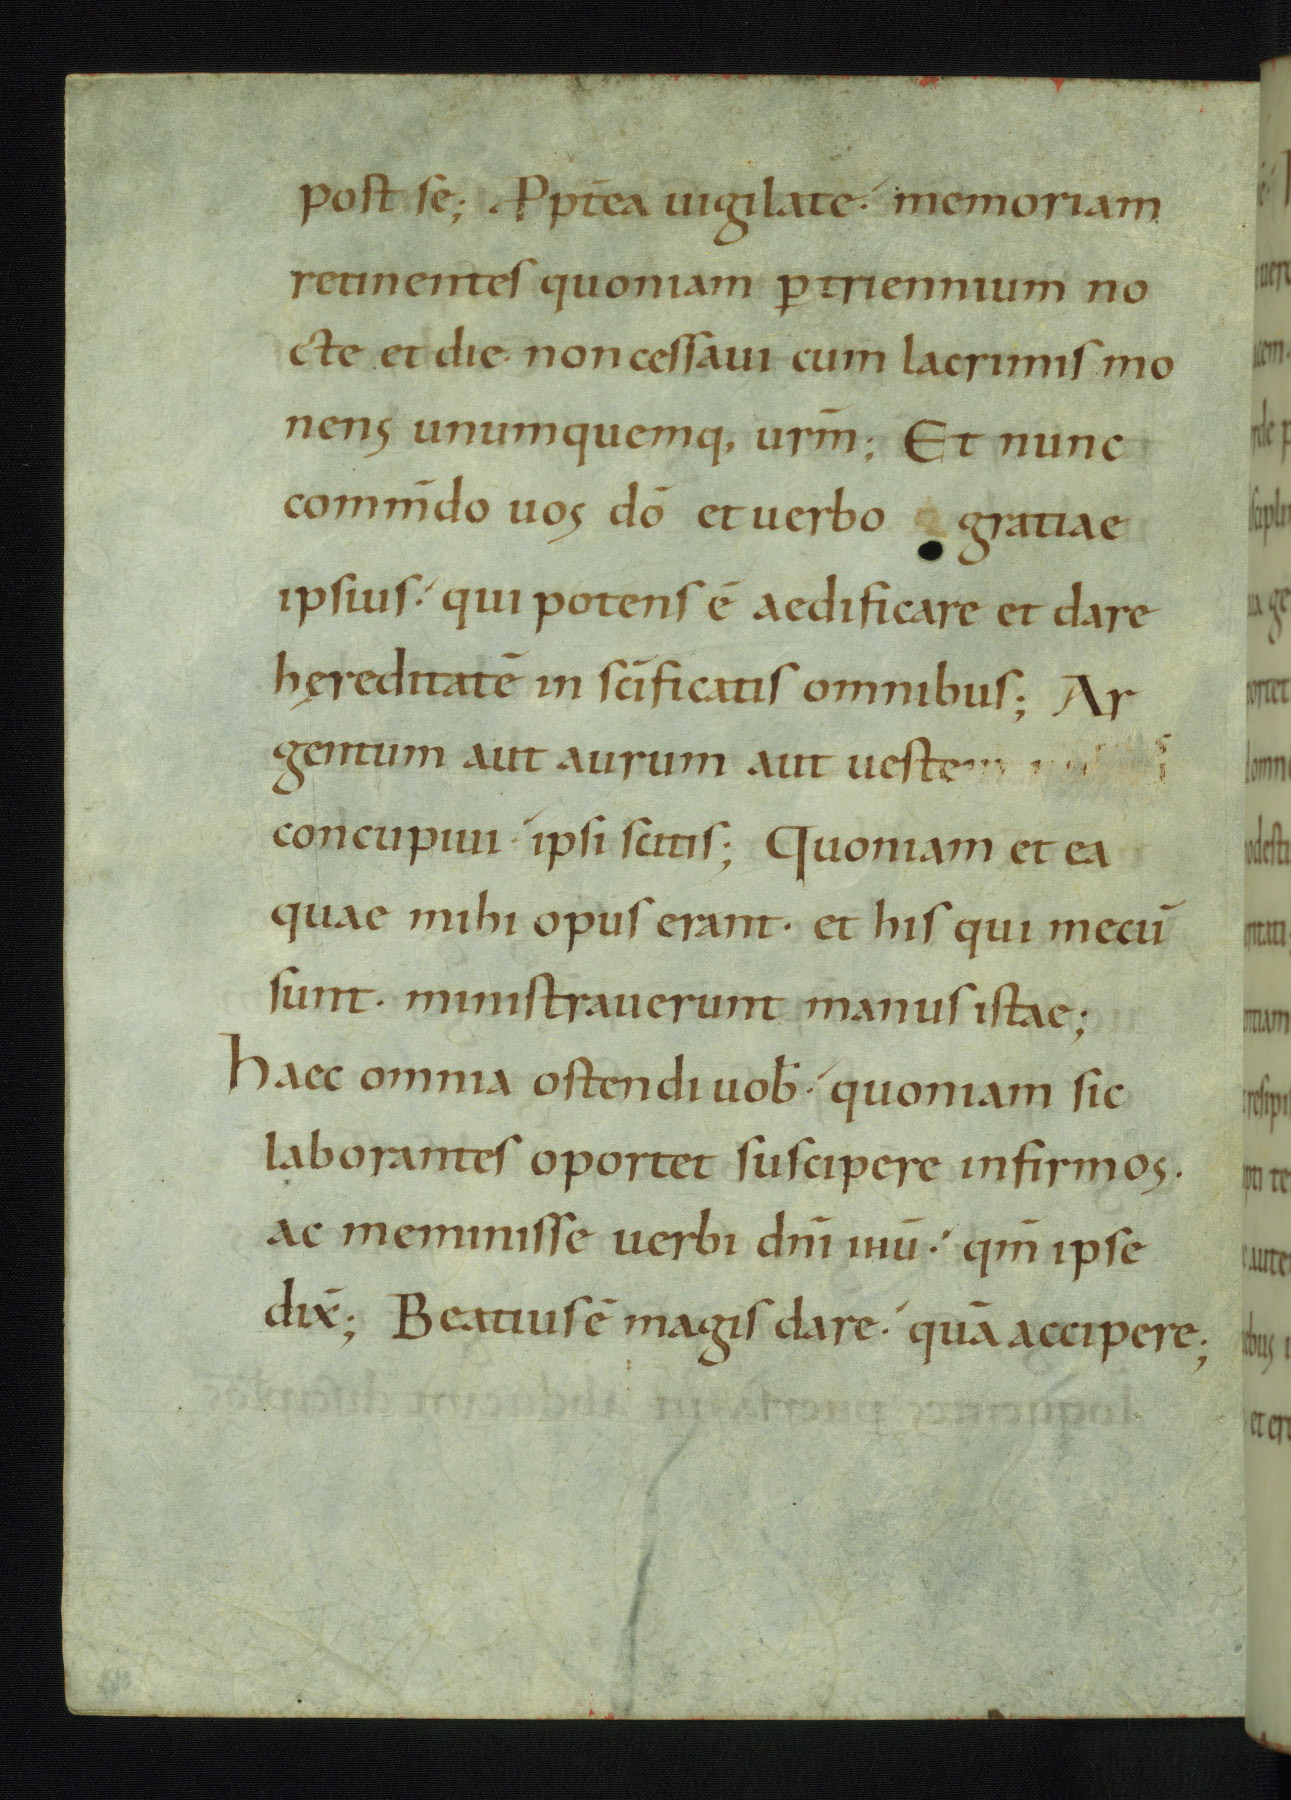 post se; Pptēa uigilate· memoriam
retinentes quoniam ꝑ triennium no
cte et die· non cessaui cum lacrimis mo
nens unumquemq, urm̄; Et nunc
comm̄do uos dō et uerbo gratiae
ipsius· qui potens ē aedificare et dare
hęreditatē in sc̄ificatis omnibus; Ar
gentum aut aurum aut uestem
concupiui· ipsi scitis; Quoniam et ea
quae mihi opus erant· et his qui mecū
sunt· ministrauerunt manus istae;
haec omnia ostendi uob̄· quoniam sic
laborantes oportet suscipere infirmos·
ac meminisse uerbi dn̄i ihū· qm̄ ipse
dix̄; Beatius ē magis dare· quā accipere;